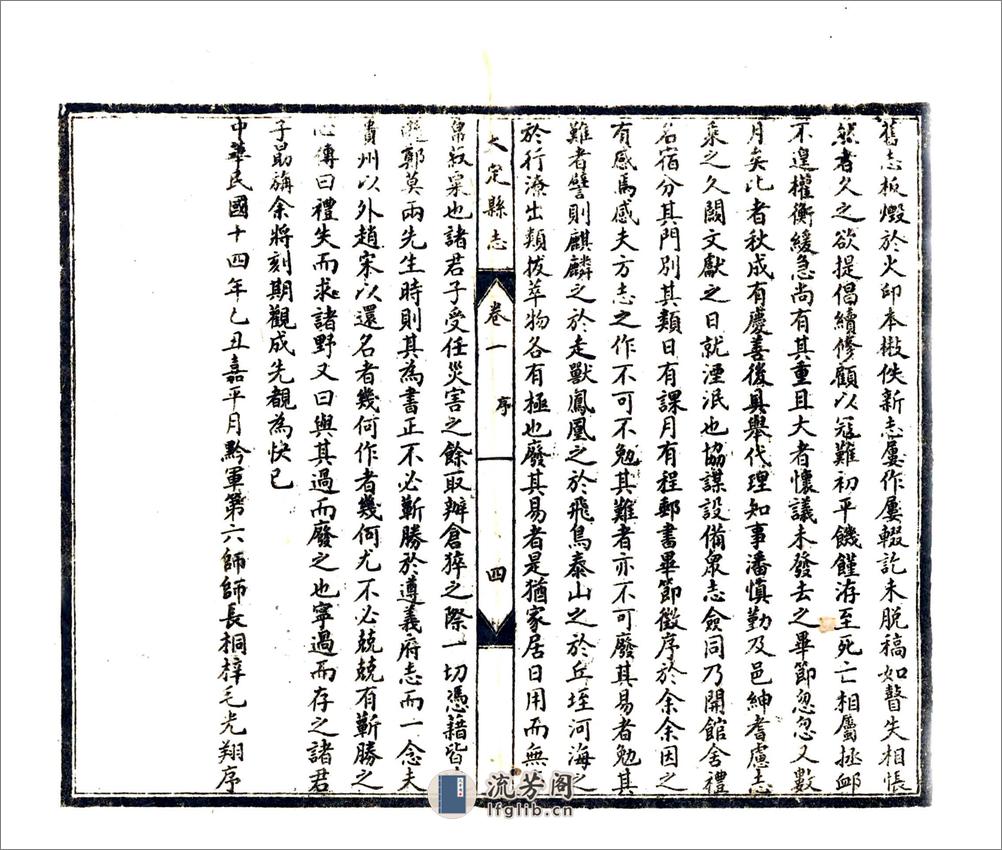 舊志板燬於火印本散佚新志屢作屢輟訖未脫稿如瞽失相悵
然者久之欲提倡續修顧以寇難初平饑饉洊至死亡相屬拯卹
不遑權衡緩急尚有其重且大者懷議未發去之畢節忽忽又數
月矣比者秋成有慶善後具舉代理知事潘慎勤及邑紳耆慮志
乘之久闕文獻之日就湮泯也協謀設備眾志僉同乃開館舍禮
名宿分其門別其類日有課月有程郵書畢節徵序於余余因之
有感焉感夫方志之作不可不勉其難者亦不可廢其易者勉其
難者譬則麒麟之於走獸鳳凰之於飛鳥泰山之於丘垤河海之
於行潦出類拔萃物各有極也廢其易者是猶家居日用而無
大定縣志
卷一
序
四
帛菽粟也諸君子受任災害之餘取辦倉猝之際一切憑藉皆
遜鄭莫兩先生時則其為書正不必蘄勝於遵義府志而一念夫
貴州以外趙宋以還名者幾何作者幾何尤不必兢兢有蘄勝之
心傳曰禮失而求諸野又曰與其過而廢之也寧過而存之諸君
子勗旃余將刻期觀成先覩為快已
中華民國十四年乙丑嘉平月黔軍第六師師長桐梓毛光翔序
流芳阁
lfglib.cn